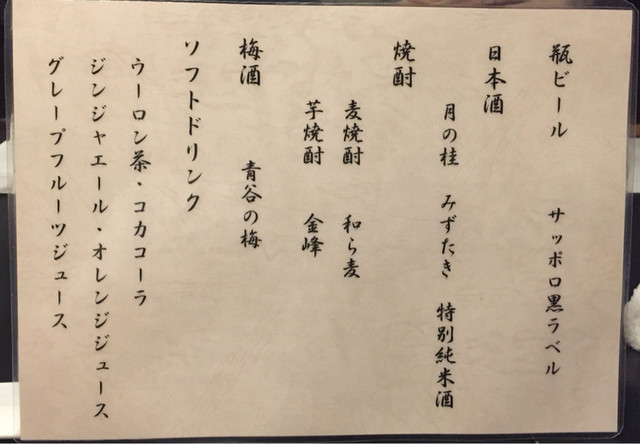 瓶ビール　サッポロ黒ラベル
日本酒
月の桂　みずたき　特別純米酒
焼酎
麦焼酎　和ら麦
芋焼酎　金峰
梅酒　青谷の梅
ソフトドリンク
ウーロン茶・コカコーラ
ジンジャエール・オレンジジュース
グレープフルーツジュース